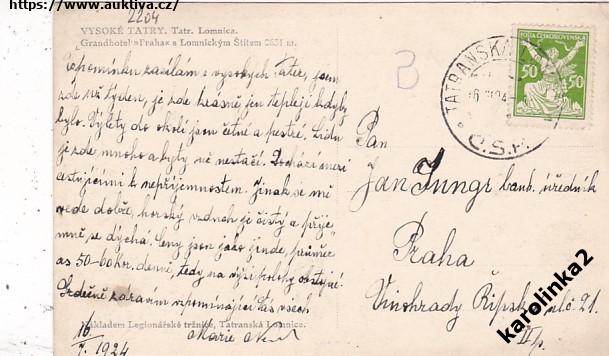 https://www.auktiva.cz/
2204
VYSOKÉ TATRY. Tatr. Lomnica.
„Grandhotel Praha“ s Lomnickým Štítem 2631 m.
POŠTA ČESKOSLOVENSKÁ
50 50
TATRANSKÁ
Č.S.P.
B
Vzpomínku zasílám z vysokých Tater, jsem
zde už týden, je zde krásně jen tepleji kdyby
bylo. Výlety do okolí jsou četné a pestré. Lidu
je zde mnoho a byty už nestačí. Dochází mezi
cestujícími k nepříjemnostem. Jinak se mi
vede dobře, horský vzduch je čistý a příje-
mně se dýchá. Ceny jsou jako jinde,
as 50-60 Kč. denně, tedy na
Srdečně zdravím vzpomínající Vás všech
Marie
Pan
Jan Jungr banb. úředník
Praha
Vinohrady Řípská ul. č. 21.
II/p.
Nákladem Legionářské tržnice, Tatranská Lomnica.
16/
7. 1924
karolinka2